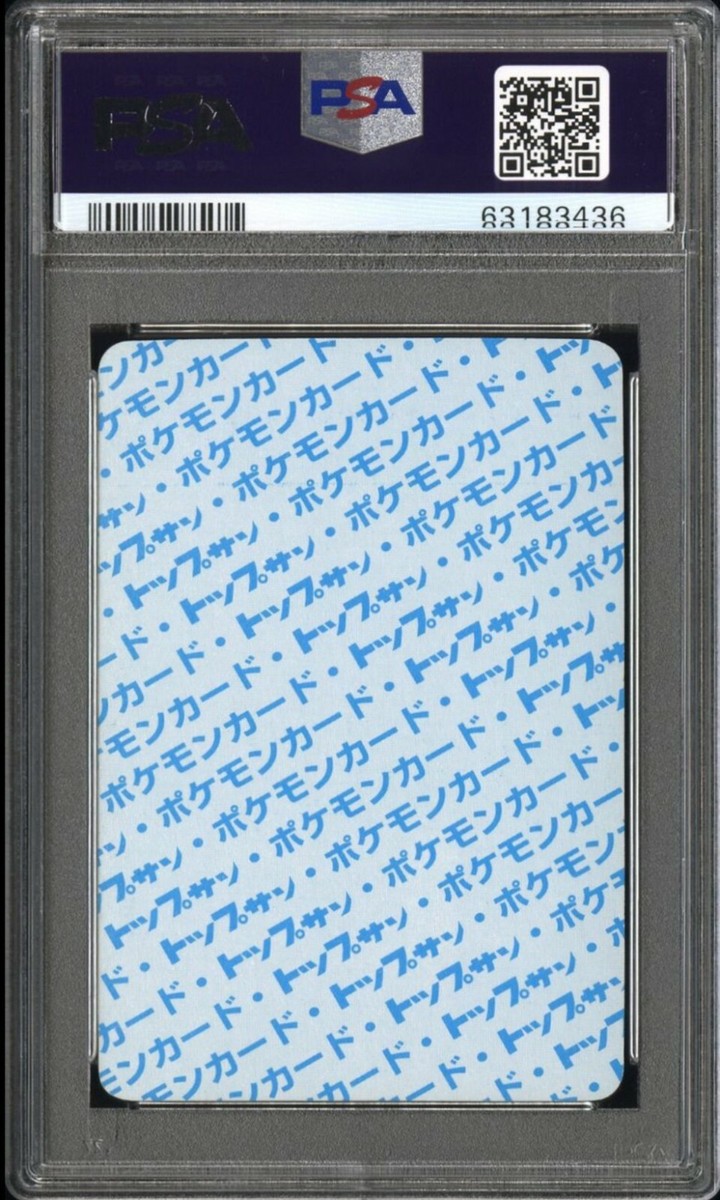 PSA
PSA
63183436
ンカー
ケモンカード
・ポケモンカード
サン・ポケモンカード・
ップサン・ポケモンカード・ト
・トップサン・ポケモンカード・トッ
ード・トップサン・ポケモンカード・ト
ンカード・トップサン・ポケモンカード
モンカード・トップサン・ポケモンカ
ポケモンカード・トップサン・ポケモン
・ポケモンカード・トップサン・ポケ
プサン・ポケモンカード・トップサン・
トップサン・ポケモンカード・トップサ
ド・トップサン・ポケモンカード・トッ
カード・トップサン・ポケモンカード・
ンカード・トップサン・ポケモンカー
モンカード・トップサン・ポケモン
カード・トップサン・ポケ
ド・トップサン・
・トップサ
ド・トッ